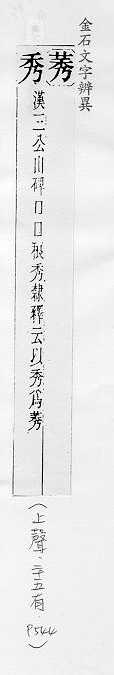 金石文字辨異
莠
秀
漢三公山碑囗囗稂秀隸釋云以秀爲莠
（上聲、二十五有 P544）